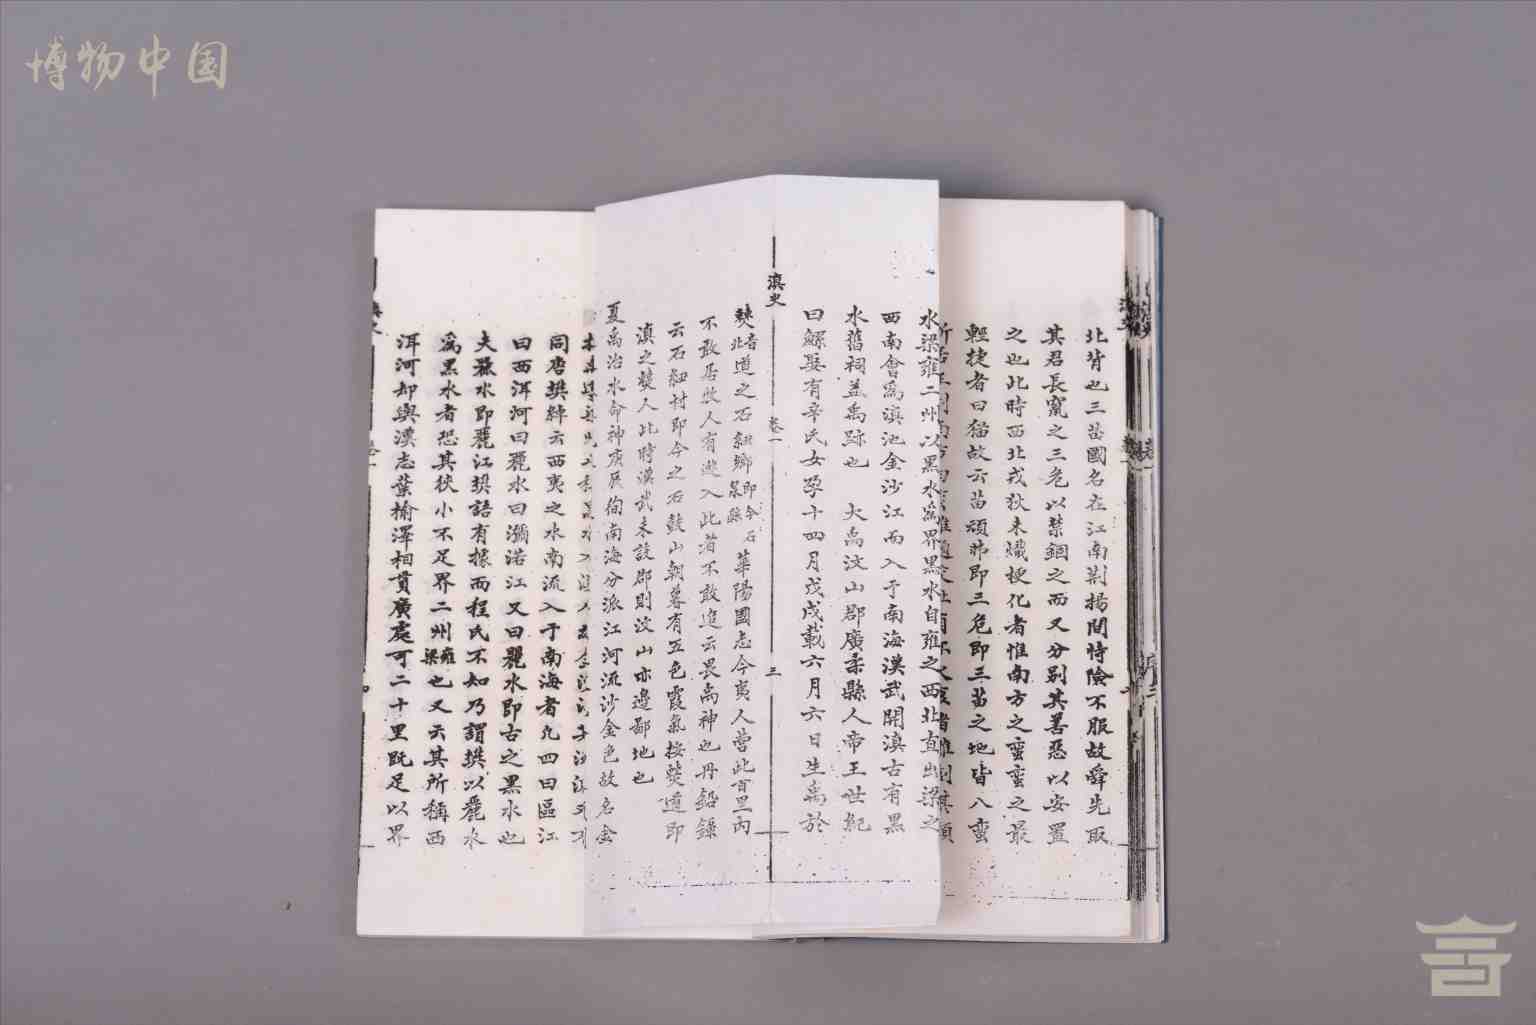 博物中国
北背也三苗國名在江南荆揚間恃險不服故舜先取
其君長竄之三危以禁錮之而又分别其善惡以安置
之也北時西北戎狄未熾梗化者惟南方之蠻蠻之最
輕捷者曰猫故云苗頑弗即三危即三苗之地皆八蠻
水梁雍二州以黑水為界黑水自雍之西北直出梁之
西南會為滇池金沙江而入于南海漢武開滇古有黑
水舊祠益禹跡也 大禹汶山郡廣柔縣人帝王世紀
曰鯀娶有辛氏女孕十四月戊戌載六月六日生禹於
滇史
卷一
三
僰音北道之石紐鄉即今石泉縣華陽國志今夷人营此百里内
不敢居牧人有逃入此者不敢追云畏禹神也丹鉛錄
云石紐村即今之石鼓山朝暮有五色霞氣按僰道即
滇之僰人此時漢武未設郡則汶山亦邊鄙地也
夏禹治水命神庚辰徇南海分派江河流沙金色故名金
同唐樊綽云西夷之水南流入于南海者凡四曰區江
曰西洱河曰麗水曰瀰諾江又曰麗水即古之黑水也
夫麗水即麗江樊語有據而程氏不知乃謂樊以麗水
為黑水者恐其狹小不足界二州梁雍也又云其所稱西
洱河却與漢志葉榆澤相貫廣處可二十里既足以界